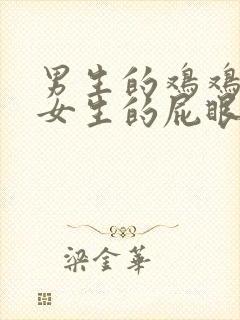 男生的鸡鸡
女生的屁眼
梁金華